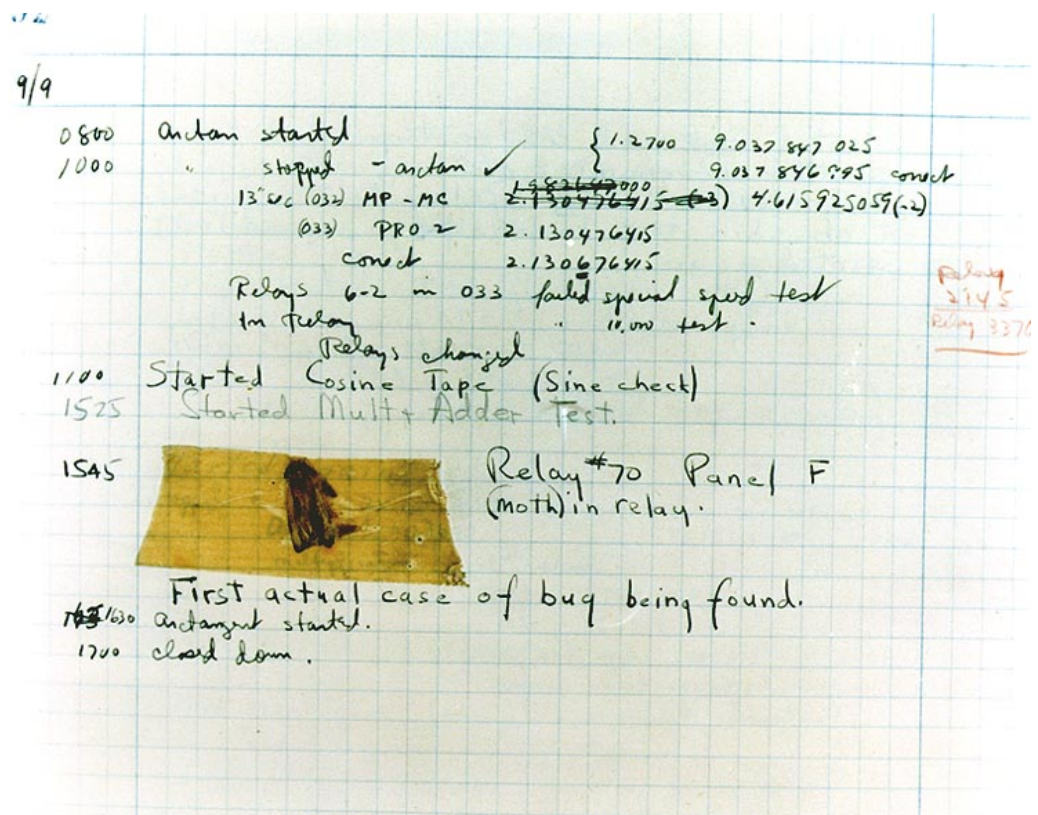 9/9
0800 arctan started { 1.2700 9.037 847 025
1000 " stopped - arctan ✓ 9.037 846 995 correct
13"sec (032) MP - MC 2.130476415 (-3) 4.615925059(-2)
(033) PRO 2 2.130476415
correct 2.130676415
Relays 6-2 in 033 failed special speed test
In Relay " 10.000 test.
Relay
2145
Relay 3370
Relays changed
1100 Started Cosine Tape (Sine check)
1525 Started Mult + Adder Test.
1545 Relay #70 Panel F
(moth) in relay.
First actual case of bug being found.
1630 arctangent started.
1700 closed down.